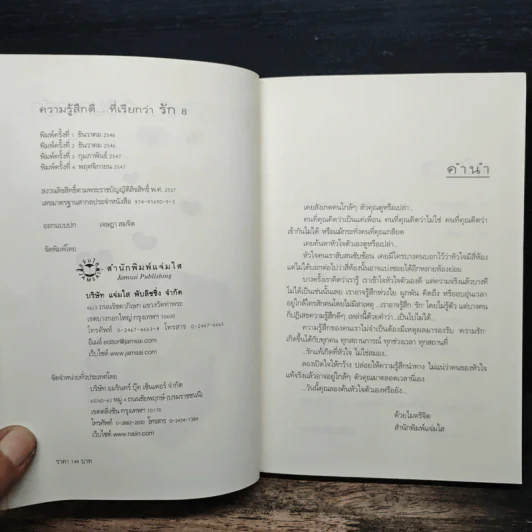 ความรู้สึกดี...ที่เรียกว่า รัก 8
พิมพ์ครั้งที่ 1 ธันวาคม 2546
พิมพ์ครั้งที่ 2 ธันวาคม 2546
พิมพ์ครั้งที่ 3 กุมภาพันธ์ 2547
พิมพ์ครั้งที่ 4 พฤศจิกายน 2547
สงวนลิขสิทธิ์ตามพระราชบัญญัติลิขสิทธิ์ พ.ศ. 2537
เลขมาตรฐานสากลประจำหนังสือ 974-91690-9-5
ออกแบบปก เจษฎา สมจิต
จัดพิมพ์โดย
สำนักพิมพ์แจ่มใส
Jamsai Publishing
บริษัท แจ่มใส พับลิชชิ่ง จำกัด
เขตบางกอกใหญ่ กรุงเทพฯ 10600
อีเมล์ editor@jamsai.com
เว็บไซต์ www.jamsai.com
จัดจำหน่ายทั่วประเทศโดย
บริษัท อมรินทร์ บุ๊ค เซ็นเตอร์ จำกัด
65/60-62 หมู่ 4 ถนนชัยพฤกษ์ (บรมราชชนนี)
เขตตลิ่งชัน กรุงเทพฯ 10170
โทรศัพท์ 0-2882-2000 โทรสาร 0-2434-1384
เว็บไซต์ www.naiin.com
ราคา 149 บาท
คำนำ
เคยสังเกตคนใกล้ๆ ตัวคุณดูหรือเปล่า...
คนที่คุณคิดว่าเป็นแค่เพื่อน คนที่คุณคิดว่าไม่ใช่ คนที่คุณคิดว่า
เข้ากันไม่ได้ หรือแม้กระทั่งคนที่คุณเกลียด
เคยค้นหาหัวใจตัวเองดูหรือเปล่า...
หัวใจคนเราสับสนซับซ้อน เคยมีใครบางคนบอกไว้ว่าหัวใจมีสี่ห้อง
แต่ไม่ได้บอกต่อไปว่าสี่ห้องนั้นอาจแบ่งซอยได้อีกหลายห้องย่อย
บางครั้งเราคิดว่าเรารู้ เราเข้าใจหัวใจตัวเองดี แต่ความจริงแล้วบางที
ไม่ได้เป็นเช่นนั้นเลย เราอาจรู้สึกห่วงใย ผูกพัน คิดถึง หรืออบอุ่นเวลา
อยู่ใกล้ใครสักคนโดยไม่มีสาเหตุ ...เราอาจรู้สึก 'รัก' โดยไม่รู้ตัว แต่บางคน
กับปฏิเสธความรู้สึกดีๆ เหล่านี้ด้วยคำว่า...เป็นไปไม่ได้...
ความรู้สึกของคนเราไม่จำเป็นต้องมีเหตุผลมารองรับ 'ความรัก'
เกิดขึ้นได้กับทุกคน ทุกสถานการณ์ ทุกช่วงเวลา ทุกสถานที่
...รักแท้เกิดที่หัวใจ ไม่ใช่สมอง...
ลองเปิดใจให้กว้าง ปล่อยให้ความรู้สึกนำทาง ไม่แน่ว่าคนของหัวใจ
แท้จริงแล้วอาจอยู่ใกล้ๆ ตัวคุณมาตลอดเวลานี้เอง
...วันนี้คุณลองค้นหัวใจตัวเองหรือยัง...
ด้วยไมตรีจิต
สำนักพิมพ์แจ่มใส